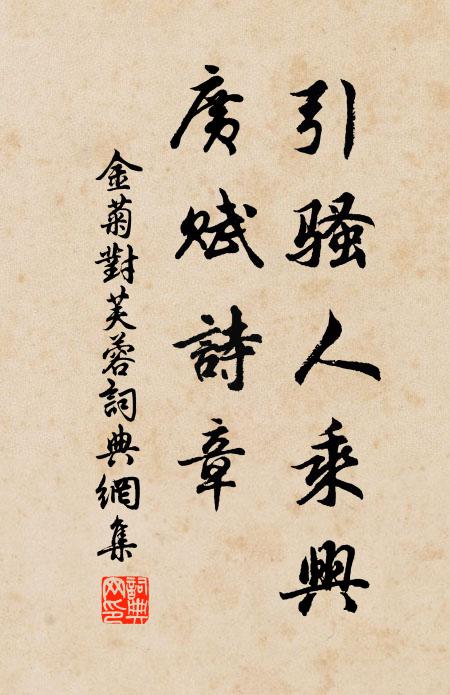 引騷人乘興
廣賦詩章
金菊對芙蓉詞典網集
詞典网印